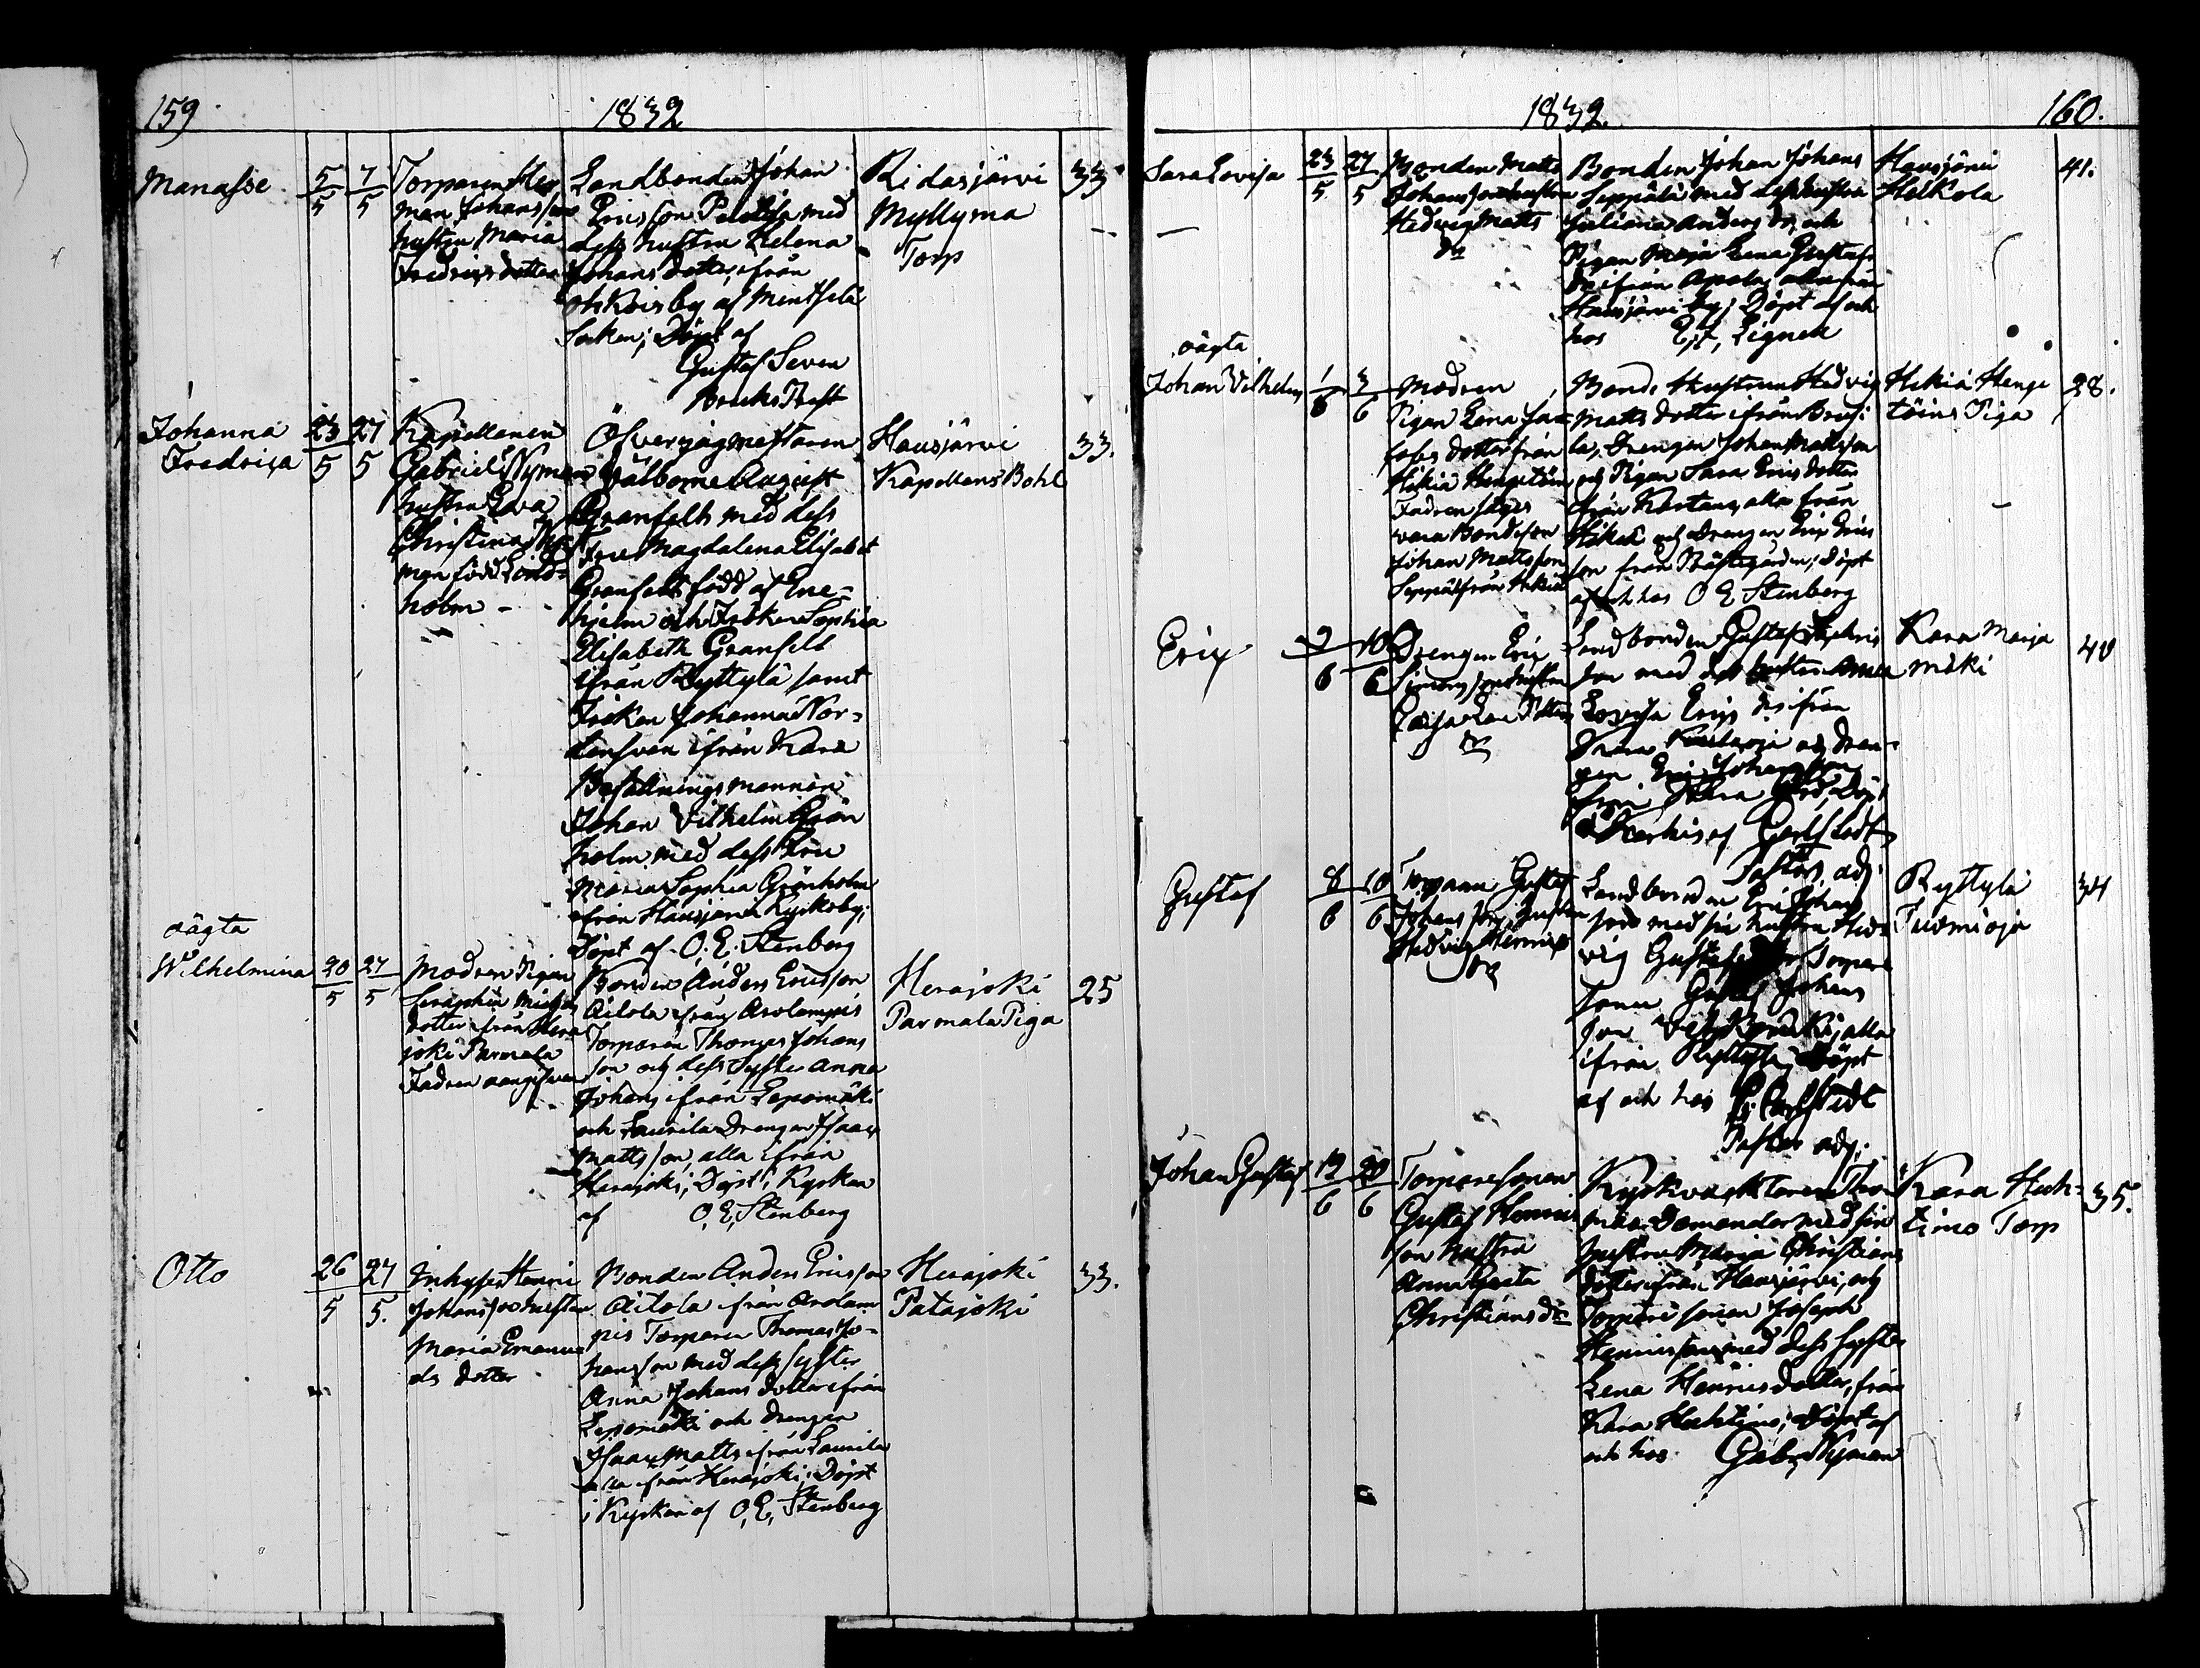 159
1832
Manasse 5/5 7/5
Torparen Her
man Johansson
hustru Maria
Fredrics dotter
Landbonden Johan
Ericsson med
dess hustru Helena
Johans dotter, ifrån
by af Mentselä
Socken; Döpt af
Gustaf Seven
Bruks Prest
Ridasjärvi
Myllyma
Torp
33
Johanna
Fredrica
23/5 27/5
Kapellanen
Gabriel Nyman
hustru Eva
Christina Ny
man född Lind=
holm
Öfverjägmestaren
Välborne August
Granfelt med dess
Fru Magdalena Elisabet
Granfelt född af Ene=
hjelm och Fröken Sophia
Elisabeth Granfelt
ifrån Ryttylä samt
Fröken Johanna Nor=
densvan ifrån Kara
Befallningsmannen
Johan Vilhelm Grön
holm med dess Fru
Maria Sophia Grönholm
ifrån Hausjärvi Kyrkoby;
Döpt af O. E. Stenberg
Hausjärvi
Kapellans Bohl
33.
oägta
Wilhelmina 20/5 27/5
Modren Pigan
Seraphia Michels
dotter från Hera
joki Parmala
Fadren oangifven
Bonden Anders Ericsson
Aitola från Arolampis
Torparen Thomas Johans
son och dess Syster Anna
Johans ifrån Lepomäki
och Laurila Drengen Isaac
Mattsson, alla ifrån
Herajoki; Döpt i Kyrkan
af O, E, Stenberg
Herajoki
Parmala Piga
25
Otto 26/5 27/5.
Inhyses Henric
Johansson hustru
Maria Emanu
els dotter
Bonden Anders Ericsson
Aitola ifrån Arolam
pis Torparen Thomas Jo=
hansson med dess Syster
Anna Johans dotter ifrån
Lepomäki och drengen
Isaac Matts ifrån Laurila
alla ifrån Herajoki; Döpt
i Kyrkan af O, E, Stenberg
Herajoki
Patajoki
33.
1832.
160.
Sara Lovisa 23/5 27/5
Bonden Matts
Johansson hustru
Hedvig Matts
dr
Bonden Johan Johans
Seppälä med dess hustru
Juliana Anders dr, och
Pigan Maja Lena Gustafs
dr ifrån Apola, alla från
Hausjärvi by; Döpt af och
hos E, J, Lignell
Hausjärvi
Heikola
41.
oägta
Johan Vilhelm 1/6 3/6
Modren
Pigan Lena Ja=
cobs dotter från
Hikiä Hengetöin
Fadren säges
vara Bondeson
Johan Mattsson
Seppälä från Hikiä
Bonde Hustrun Hedvig
Matts dotter ifrån
la, Drengen Johan Mattsson
och Pigan Sara Erics dotter
från alla från
Hikiä och drengen Eric Erics
son från Prästegården; Döpt
af och hos O E Stenberg
Hikiä Henge
töins Piga
28.
Eric 9/6 10/6
Drengen Eric
Simonsson hustru
Caisa Lova
dr
Landbonden Gustaf Henrics
son med dess hustru Anna
Lovisa Erics dr ifrån
Kara och dren=
gen Eric Johansson
från Kara Gård; Döpt
af Carlstedt
Pastors adj.
Kara Marja
mäki
40
Gustaf 8/6 10/6
Torparen Gustaf
Johansson, hustru
Hedvig Henrics
dr
Landbonden Eric Johans
son med sin hustru Hed
vig Gustafs dr, Torpare
sonen Gustaf Johans
son alla
ifrån Ryttylä; Döpt
af och hos G. Carlstedt
Pastors adj.
Ryttylä
Tuomioja
34
Johan Gustaf 19/6 20/6
Torparesonen
Gustaf Henrics
son hustru
Anna Greta
Christians dr
Kyrkvacktaren Tho
mas Domander med sin
hustru Maria Christians
dotter ifrån Hausjärvi, och
Torpare sonen Joseph
Henricsson med dess syster
Lena Henrics dotter, från
Kara Huhtimo; Döpt af
och hos Gabr. Nyman
Kara Huh=
timo Torp
35.